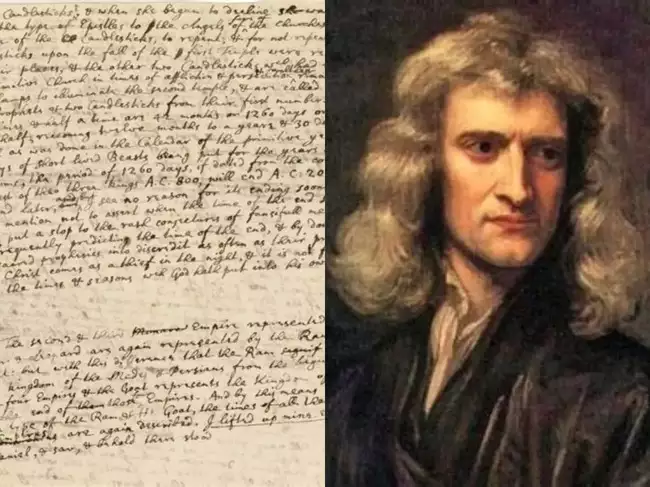 Candlesticks: & when she began to decline she wa
the type of Epistles to the Angels of the Churches
of the Candlesticks, to repent, & for not repe
sticks upon the fall of the first Temple were re
ir places, & the other two Candlesticks
mitive Church in times of affliction & persecution
amps to illuminate the second temple, & are called
prophets & two Candlesticks from their first number.
& half a time are 42 months or 1260 days or
half, recconing twelve months to a yeare & 30 da
as was done in the Calendar of the primitive ye
ys of short lived Beasts being put for the years
oms, the period of 1260 days, if dated from the co
est of three kings A.C. 800, will end A.C. 20
nd later, but I see no reason for its ending soon
mention not to assert when the time of the end
put a stop to the rash conjectures of fancifull me
requently predicting the time of the end, & by do
sacred prophesies into discredit as often as their pr
Christ comes as a thief in the night, & it is not f
the times & seasons wch God hath put into his ow
The second & third Empire represented
& Leopard are again represented by the Ram
t: but with this difference that the Ram
kingdom of the Medes & Persians from the
four Empires & the Goat represents the kingdom
the end of those Empires. And by this means
type of the Ram & He Goat, the times of all the
are again described, I lifted up mine e
aniel, & saw, & behold there stood